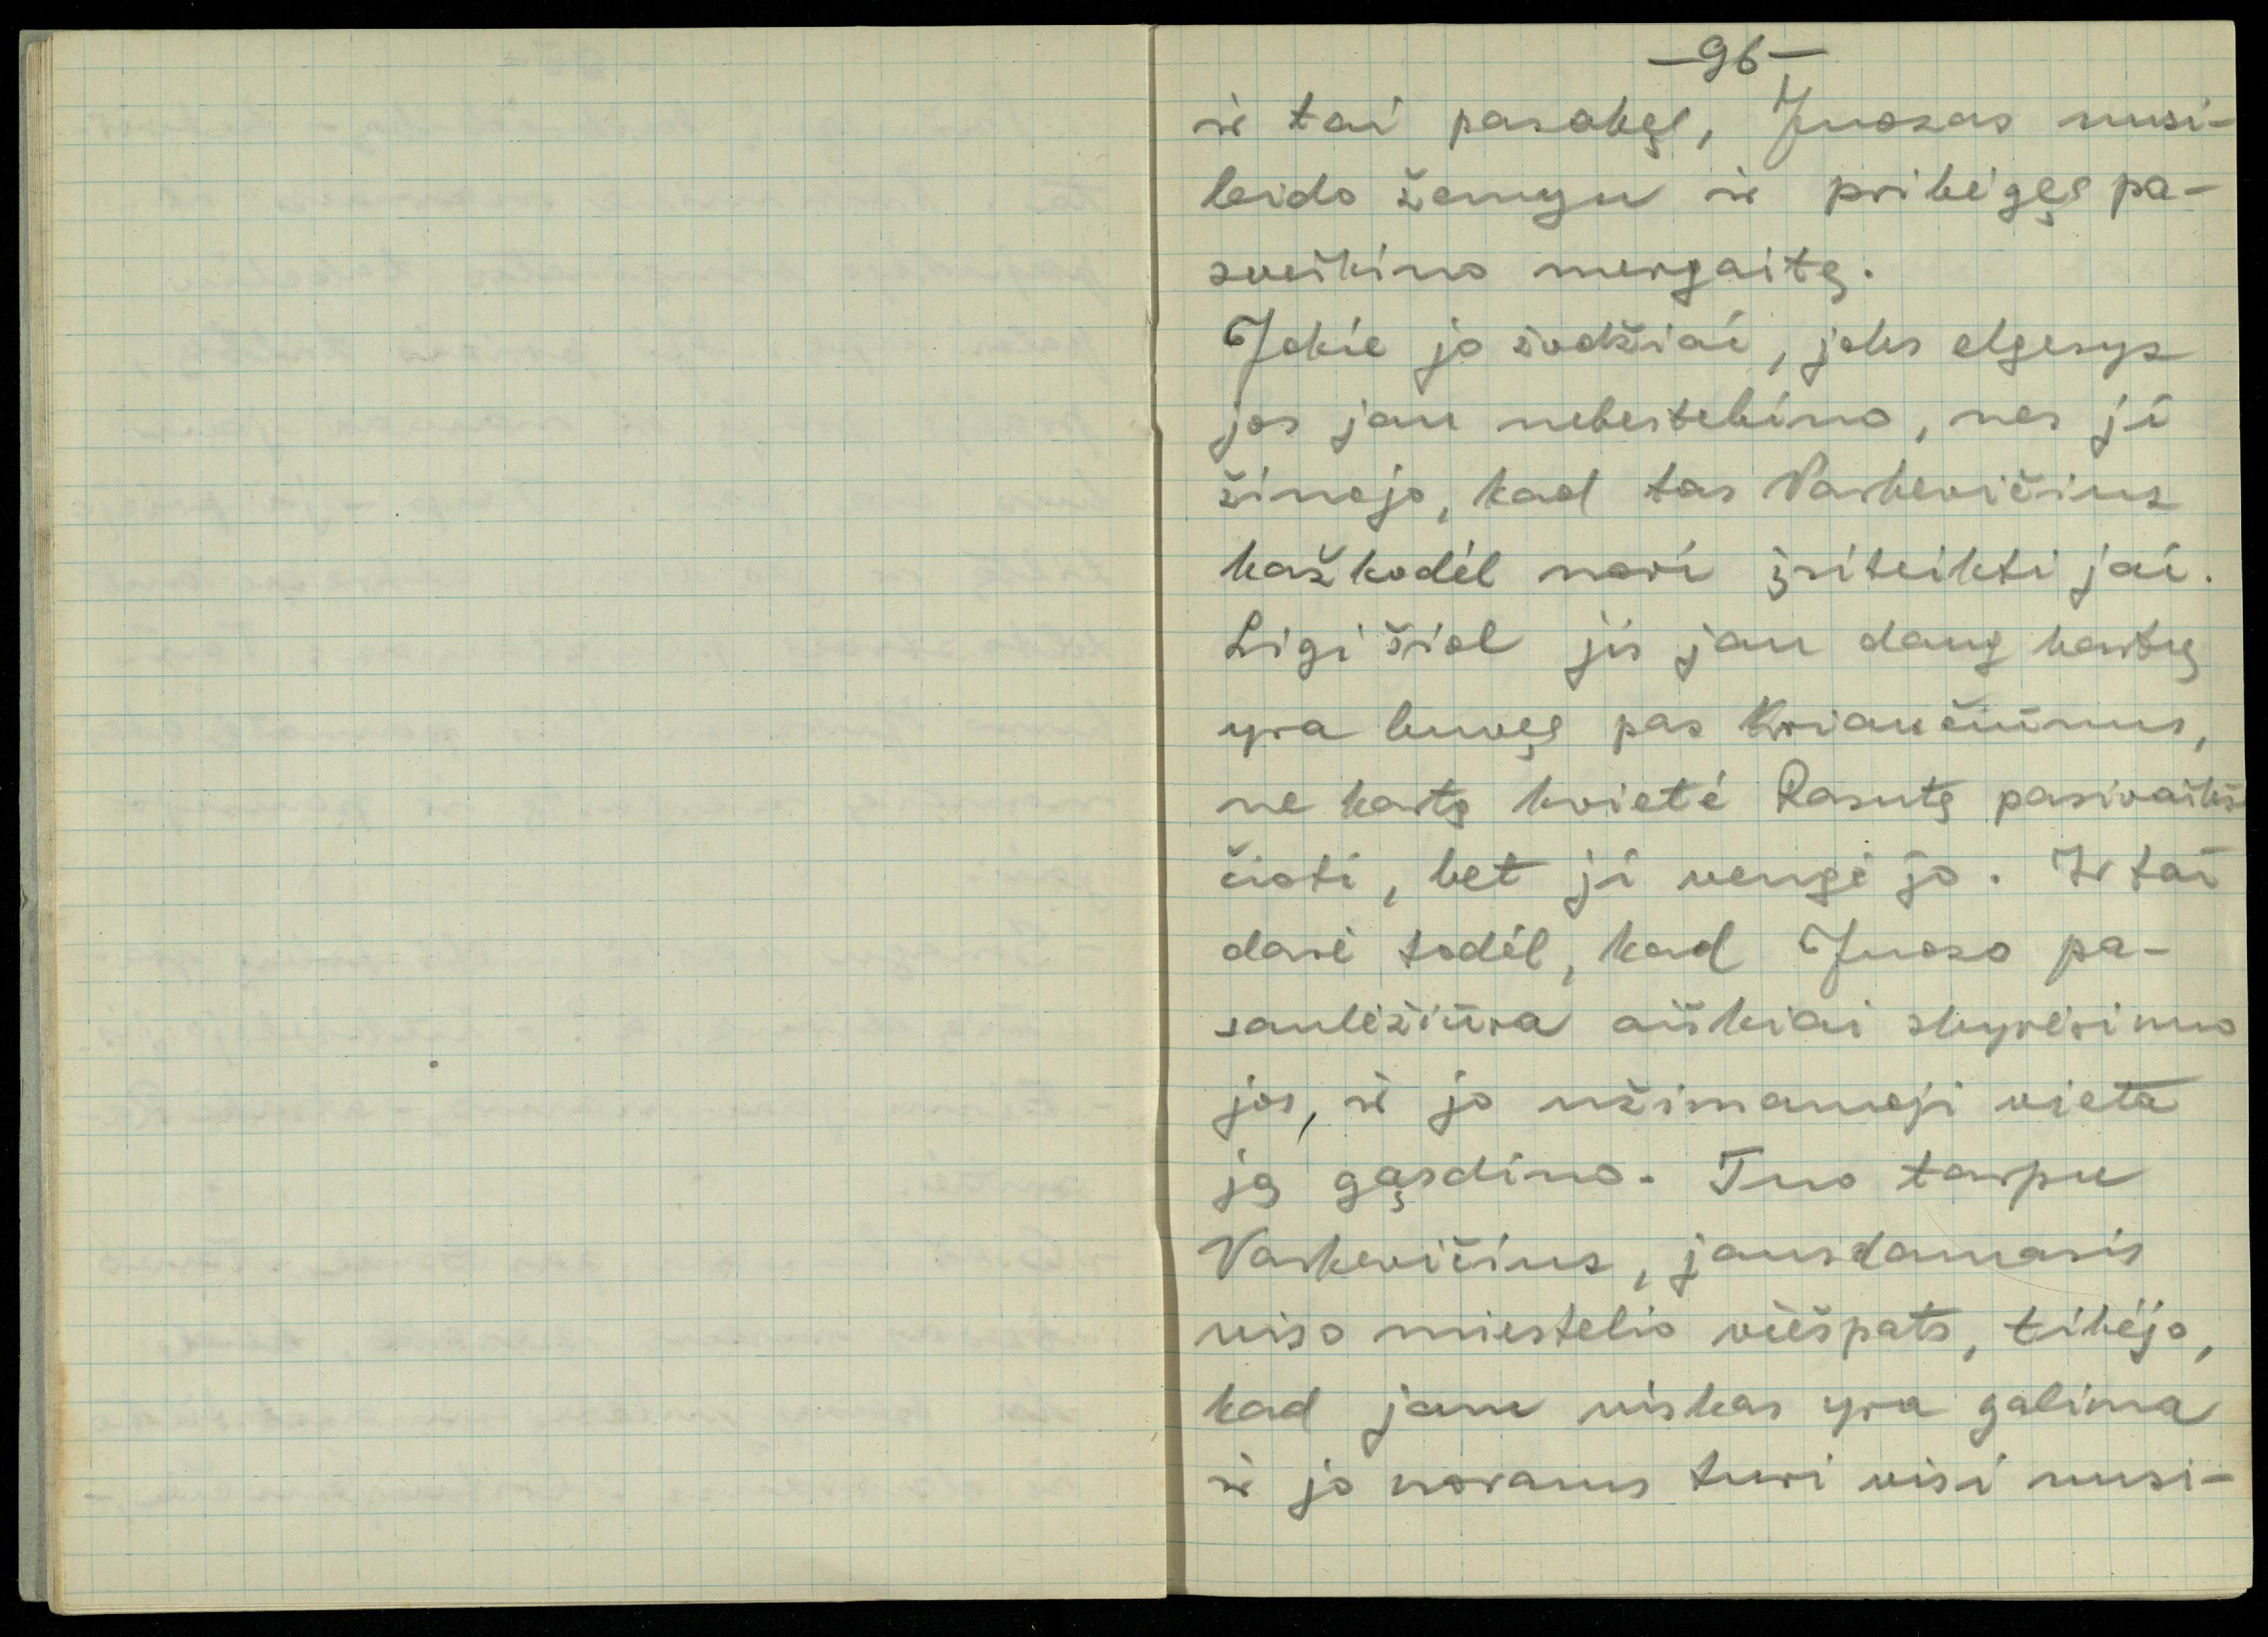 —96—
ir tai pasakęs, Juozas nusi-
leido žemyn ir pribėgęs pa-
sveikino mergaitę.
Jokie jo žodžiai, joks elgesys
jos jau nebestebino, nes ji
žinojo, kad tas Vaškevičius
kažkodėl nori įsiteikti jai.
Ligi šiol jis jau daug kartų
yra buvęs pas Kriaučiūnus,
ne kartą kvietė Rasutę pasivaikš
čioti, bet ji vengė jo. Ir tai
darė todėl, kad Juozo pa-
saulėžiūra aiškiai skyrėsi nuo
jos, ir jo užimamoji vieta
ją gąsdino. Tuo tarpu
Vaškevičius, jausdamasis
viso miestelio viešpats, tikėjo,
kad jam viskas yra galima
ir jo norams turi visi nusi-